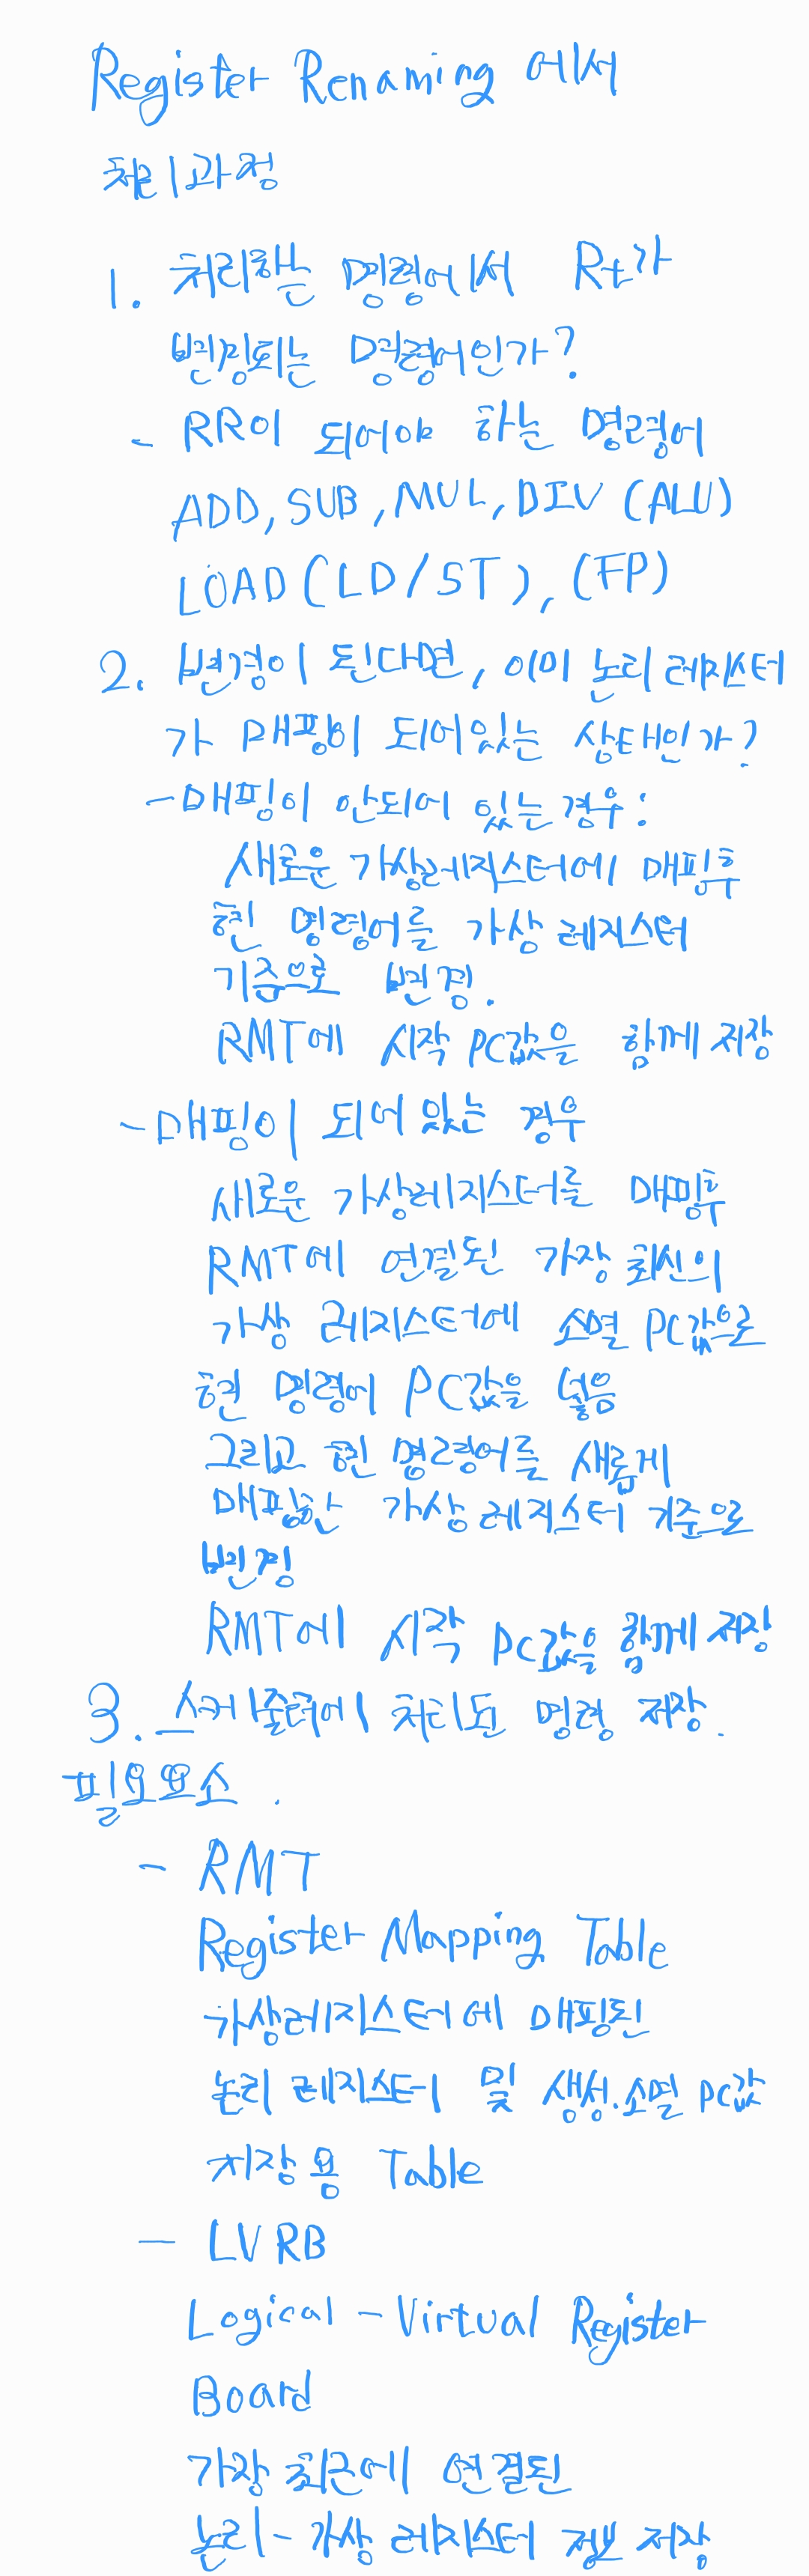 Register Renaming 에서
처리과정
1. 처리하는 명령에서 Rt가
변경되는 명령어인가?
- RR이 되어야 하는 명령어
ADD, SUB, MUL, DIV (ALU)
LOAD (LD/ST), (FP)
2. 변경이 된다면, 이미 논리 레지스터
가 매핑이 되어있는 상태인가?
- 매핑이 안되어 있는 경우:
새로운 가상레지스터에 매핑후
현 명령어를 가상 레지스터
기준으로 변경.
RMT에 시작 PC값을 함께 저장
- 매핑이 되어 있는 경우
새로운 가상레지스터를 매핑후
RMT에 연결된 가장 최신의
가상 레지스터에 소멸 PC값으로
현 명령어 PC값을 넣음
그리고 현 명령어를 새롭게
매핑한 가상 레지스터 기준으로
변경
RMT에 시작 PC값을 함께 저장
3. 스케줄러에 처리된 명령 저장.
필요요소.
- RMT
Register Mapping Table
가상레지스터에 매핑된
논리 레지스터 및 생성.소멸 PC값
저장용 Table
- LVRB
Logical - Virtual Register
Board
가장 최근에 연결된
논리 - 가상 레지스터 정보 저장